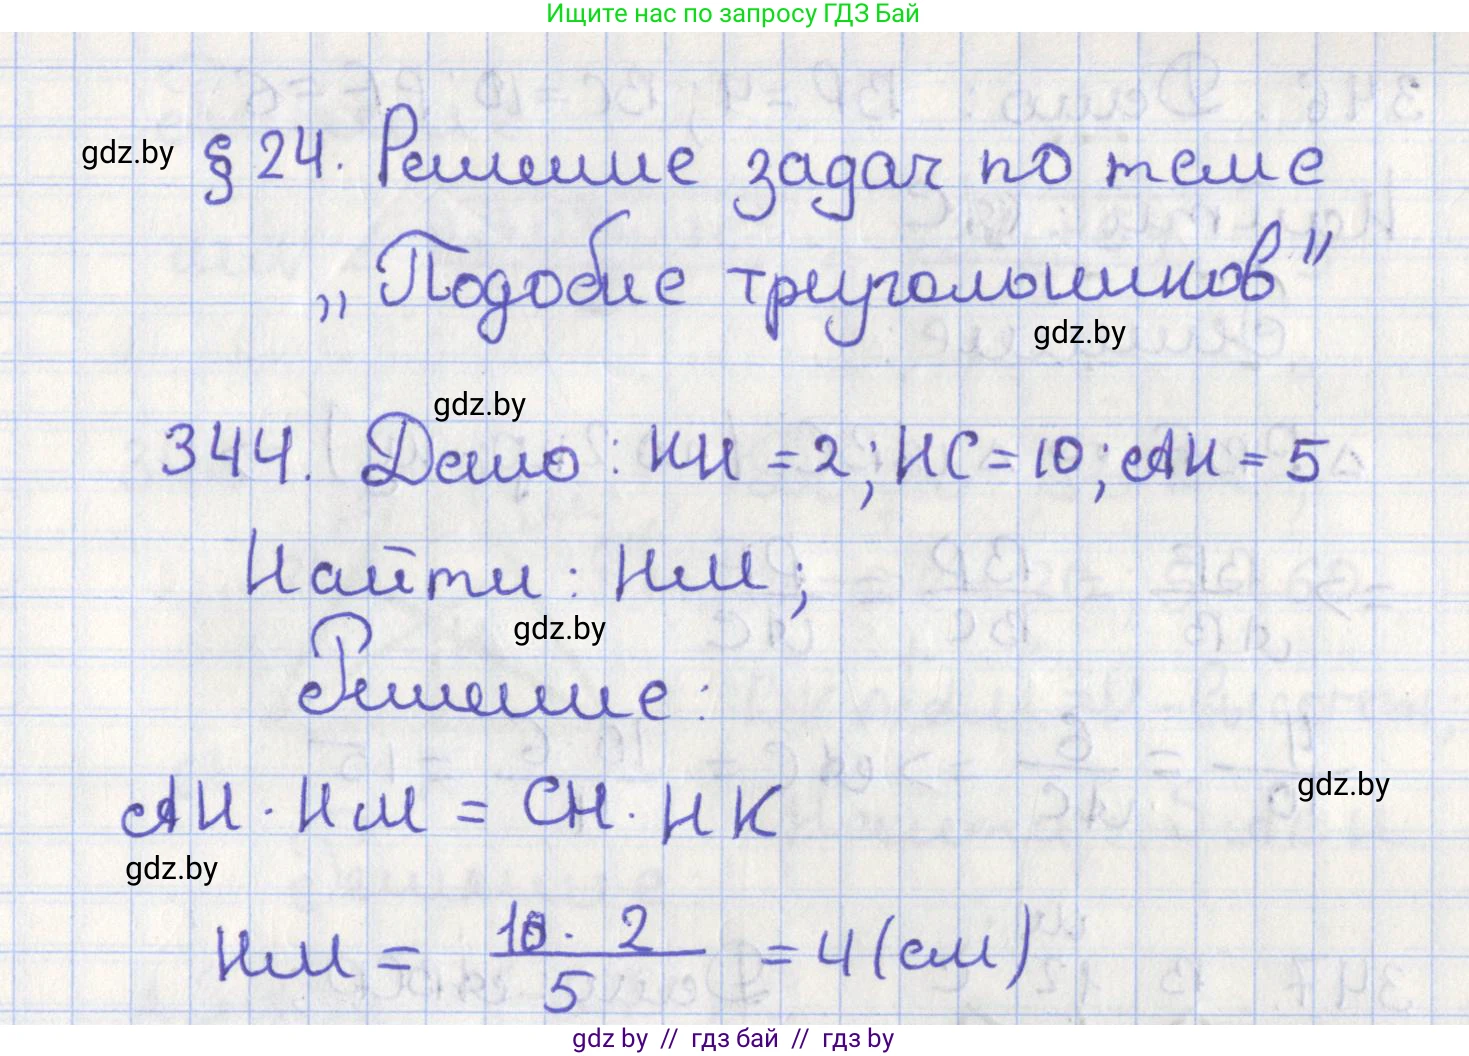 Ищите нас по запросу ГДЗ Бай
gdz.by
§ 24. Решение задач по теме
„Подобие треугольников"
gdz.by
gdz.by
344. Дано: НК = 2; НС = 10; АН = 5
Найти: НМ;
gdz.by
Решение:
gdz.by
АН · НМ = СН · НК
gdz.by
НМ = 10 · 2 / 5 = 4 (см)
gdz.by // гдз бай // гдз by